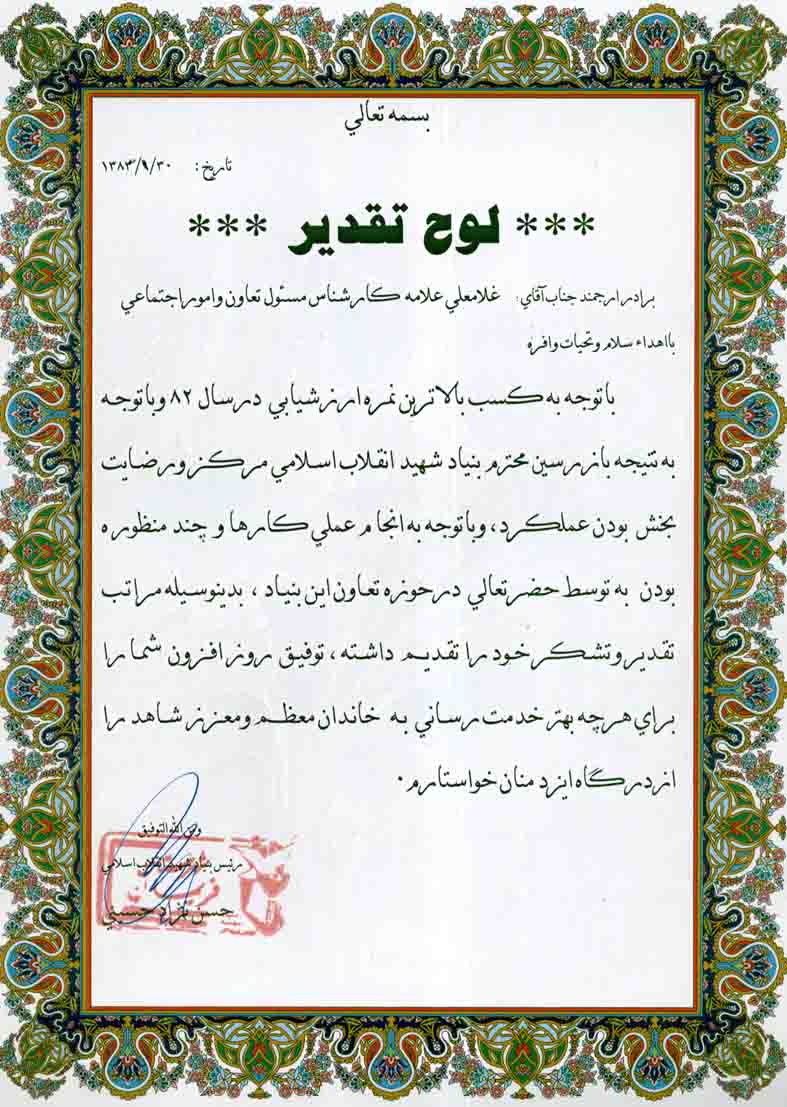 بسمه تعالي
تاريخ: ۱۳۸۳/۹/۳۰
*** لوح تقدير ***
برادر ارجمند جناب آقاي: غلامعلي علامه کارشناس مسئول تعاون و امور اجتماعي
با اهداء سلام و تحيات وافره
با توجه به کسب بالاترين نمره ارزشيابي در سال ۸۲ و با توجه
به نتيجه بازرسين محترم بنياد شهيد انقلاب اسلامي مرکز و رضايت
بخش بودن عملکرد، و با توجه به انجام عملي کارها و چند منظوره
بودن به توسط حضرتعالي در حوزه تعاون اين بنياد، بدينوسيله مراتب
تقدير و تشکر خود را تقديم داشته، توفيق روز افزون شما را
براي هر چه بهتر خدمت رساني به خاندان معظم و معزز شاهد را
از درگاه ايزد منان خواستارم.
و من الله التوفيق
رئيس بنياد شهيد انقلاب اسلامي
حسن حسيني